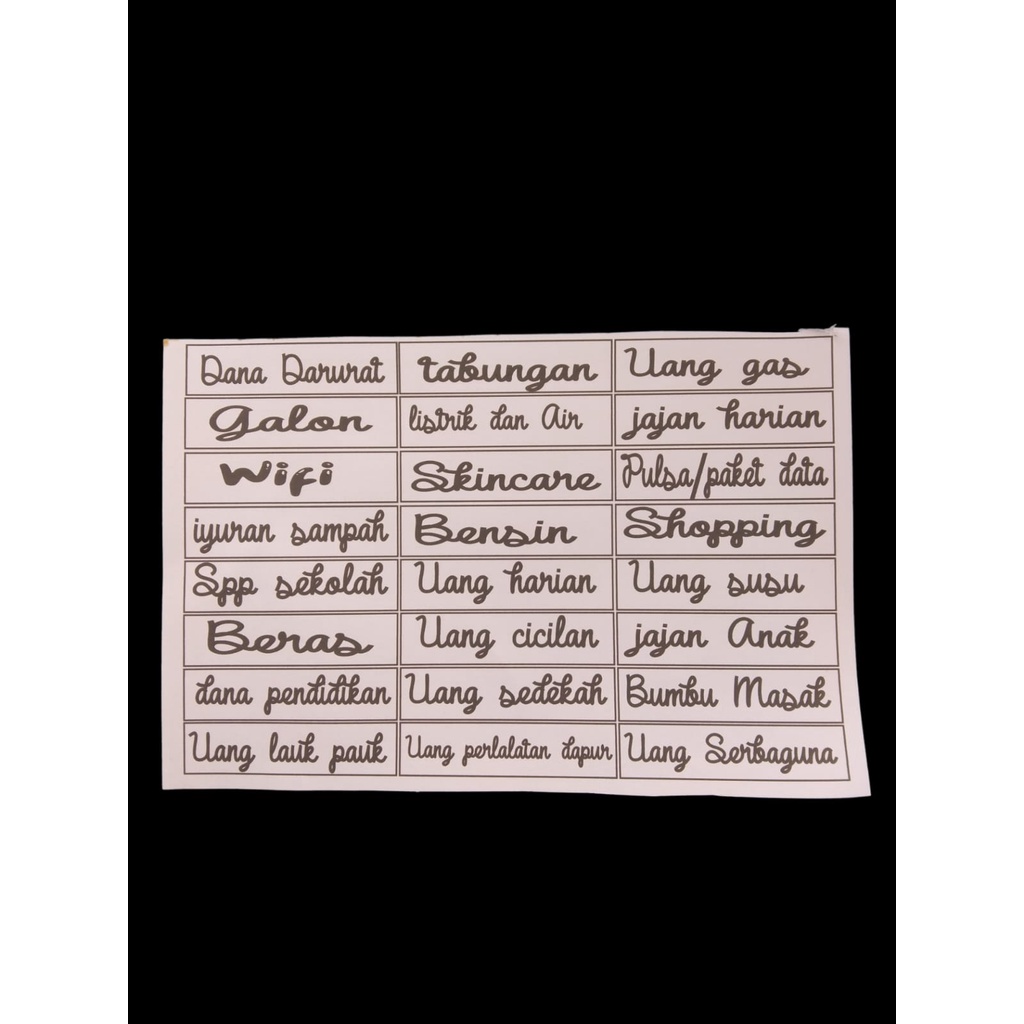 Dana Darurat tabungan Uang gas
Galon listrik dan Air jajan harian
Wifi Skincare Pulsa/paket data
iyuran sampah Bensin Shopping
Spp sekolah Uang harian Uang susu
Beras Uang cicilan jajan Anak
dana pendidikan Uang sedekah Bumbu Masak
Uang lauk pauk Uang perlalatan dapur Uang Serbaguna